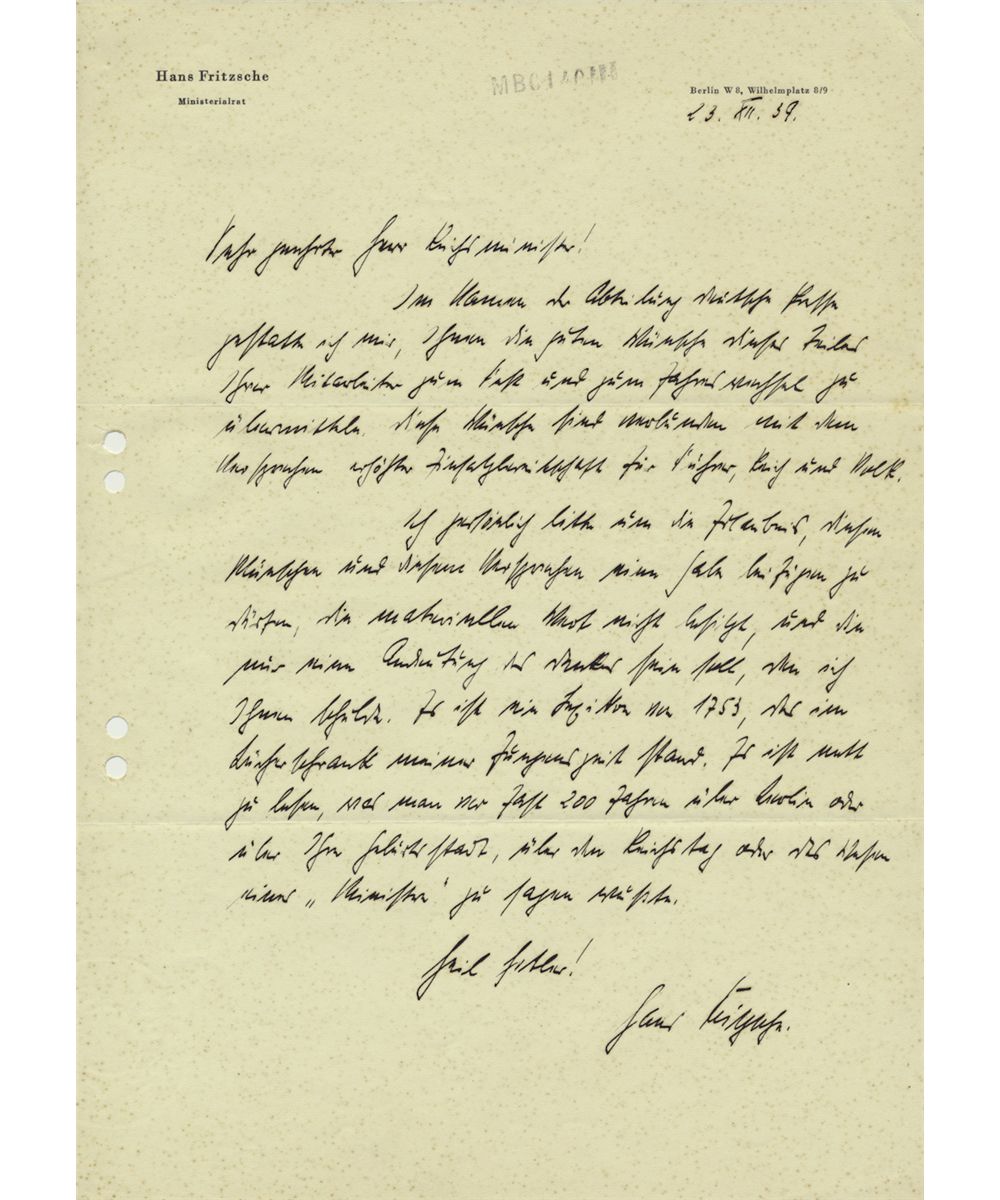 Hans Fritzsche
Ministerialrat
MBC140111
Berlin W 8, Wilhelmplatz 8/9
23. XII. 39.
Sehr geehrter Herr Reichsminister!
Im Namen der Abteilung deutsche Presse
gestatte ich mir, Ihnen die guten Wünsche dieses Teiles
Ihrer Mitarbeiter zum Fest und zum Jahreswechsel zu
übermitteln. Diese Wünsche sind verbunden mit dem
Versprechen erhöhter Einsatzbereitschaft für Führer, Reich und Volk.
Ich persönlich bitte um die Erlaubnis, diesen
Wünschen und diesem Versprechen eine Gabe beifügen zu
dürfen, die materiellen Wert nicht besitzt, und die
nur eine Andeutung des Dankes sein soll, den ich
Ihnen schulde. Es ist ein Lexikon von 1753, das im
Bücherschrank meiner Jungenszeit stand. Es ist nett
zu lesen, was man vor fast 200 Jahren über Berlin oder
über Ihre Geburtsstadt, über den Reichstag oder das Wesen
eines „Ministers" zu sagen wußte.
Heil Hitler!
Hans Fritzsche.